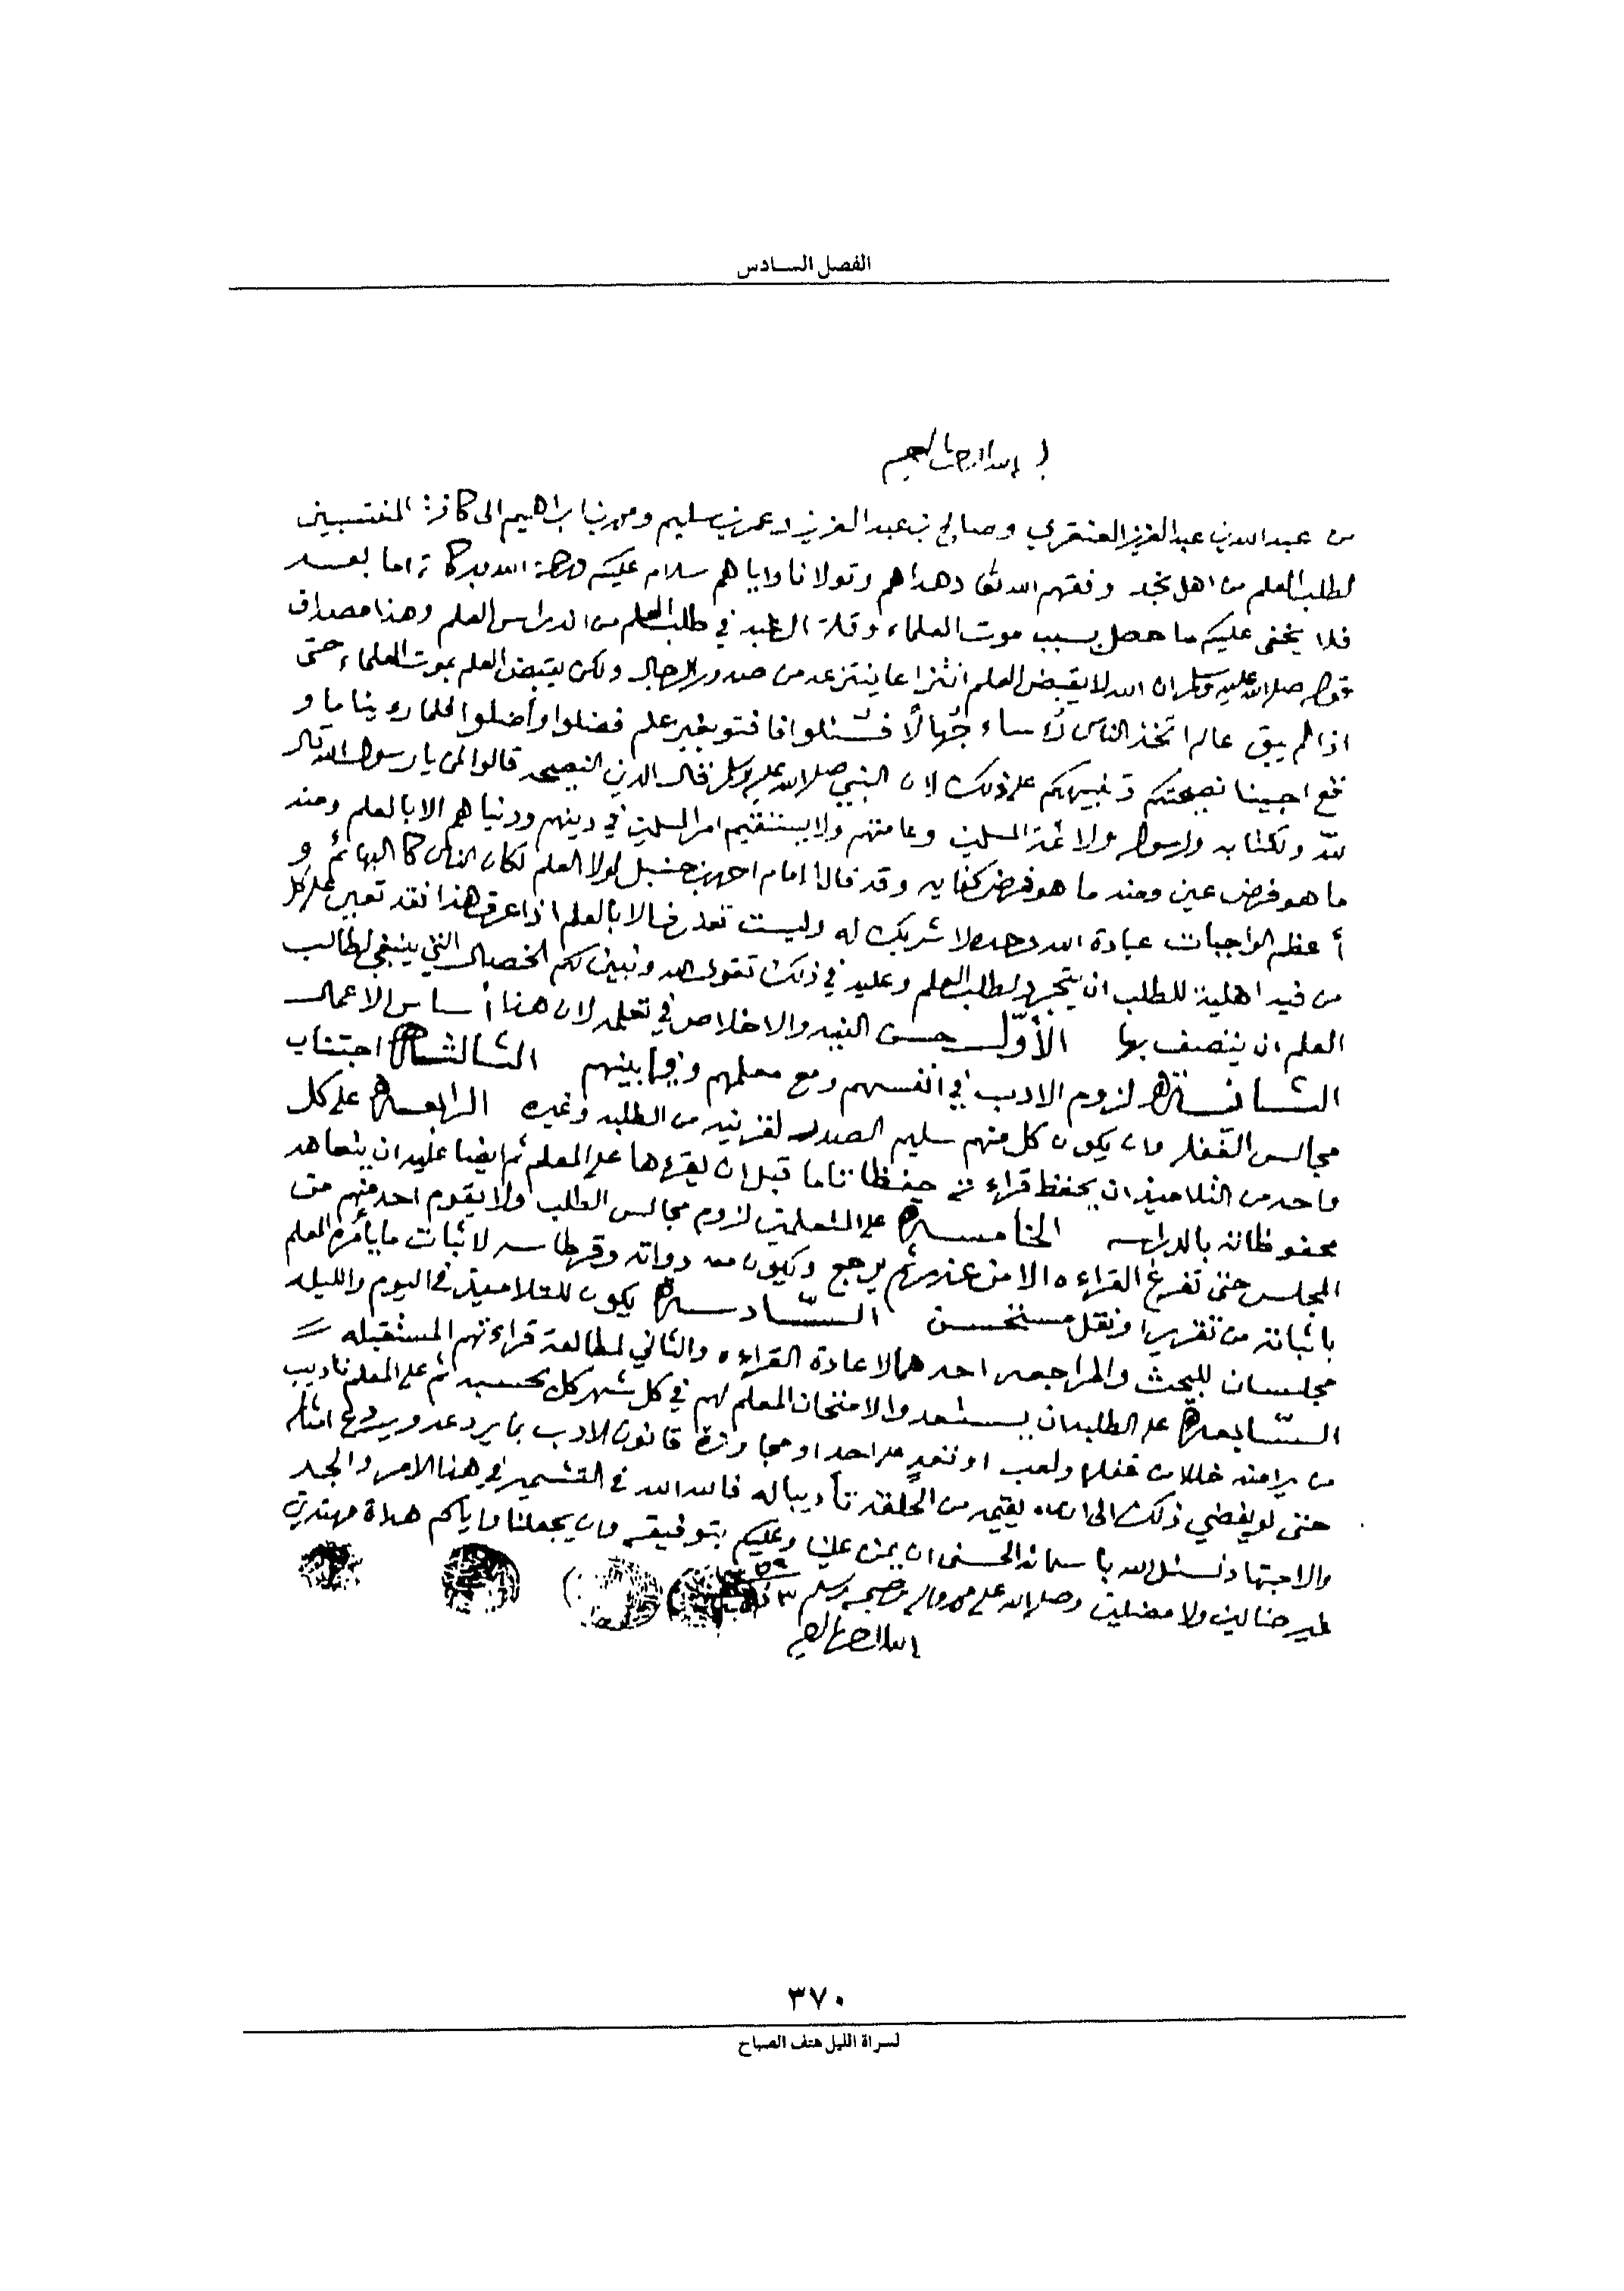 الفصل السادس
بسم الله الرحمن الرحيم
من عبدالله بن عبدالعزيز العنقري وصالح بن عبدالعزيز وعمر بن سليم ومحمد بن ابراهيم الى كافة المنتسبين
لطلب العلم من اهل نجد وفقهم الله تعالى وهداهم وتولانا واياهم سلام عليكم ورحمة الله وبركاته اما بعد
فلا يخفى عليكم ما حصل بسبب موت العلماء وقلة الرغبه في طلب العلم من اندراس العلم وهذا مصداق
قوله صلى الله عليه وسلم ان الله لا يقبض العلم انتزاعا ينتزعه من صدور الرجال ولكن يقبض العلم بموت العلماء حتى
اذا لم يبق عالم اتخذ الناس رؤساء جُهالاً فسئلوا فافتو بغير علم فضلوا وأضلوا فلما رءينا ما و
قع احببنا نصيحتكم وتنبيهكم على ذلك لان النبي صلى الله عليه وسلم قال الدين النصيحه قالوا لمن يا رسول الله قال
لله ولكتابه ولرسوله ولائمة المسلمين وعامتهم ولا يستقيم امر المسلمين في دينهم ودنياهم الا بالعلم ومنه
ما هو فرض عين ومنه ما هو فرض كفايه وقد قال الامام احمد بن حنبل لولا العلم لكان الناس كالبهائم و
أعظم الواجبات عبادة الله وحده لا شريك له وليست تعرف الا بالعلم اذا عرف هذا فقد تعين على كل
من فيه اهلية للطلب ان يتجرد لطلب العلم وعليه في ذلك تقوى الله ونبين لكم الخصال التي ينبغي لطالب
العلم ان يتصف بها الأوّل حسن النيه والاخلاص في تعلمه لان هذا أساس الاعمال
الثانية لزوم الادب في انفسهم ومع معلمهم وفيما بينهم الثالثة اجتناب
مجالس الغفله وان يكون كل منهم سليم الصدر لقرنيه من الطلبه وغيره الرابعة على كل
واحد من التلاميذ ان يحفظ قراءته حفظا تاما قبل ان يقرءها على المعلم ثم ايضا عليه ان يتعاهد
محفوظاته بالدراسه الخامسة على المتعلمين لزوم مجالس الطلب ولا يقوم احد منهم من
المجلس حتى تفرغ القراءه الا من عذر ثم يرجع ويكون معه دواته وقرطاسه لاثبات ما يأمره المعلم
باثباته من تقرير او نقل مستحسن السّادسة يكون للتلاميذ في اليوم والليله
مجلسان للبحث والمراجعه احدهما لاعادة القراءه والثاني لمطالعة قراءتهم المستقبله
السّابعة على الطلبه ان يستعدوا لامتحان المعلم لهم في كل شهر كل بحسبه ثم على المعلم تاديب
من يرا منه خللا من غفله ولعب او تعدٍ على احد او مجاوزة قانون الادب بما يردعه ويردع امثاله
حتى لو يفضي ذلك الى انه يقيمه من الحلقة تأديبا له فالله الله في التشمير في هذا الامر والجد
والاجتهاد نسئل الله باسمائه الحسنى ان يمن علينا وعليكم بتوفيقه وان يجعلنا واياكم هداة مهتدين
غير ضالين ولا مضلين وصلى الله على محمد واله وصحبه وسلم ٣
٣٧٠
لسراة الليل هتف الصباح